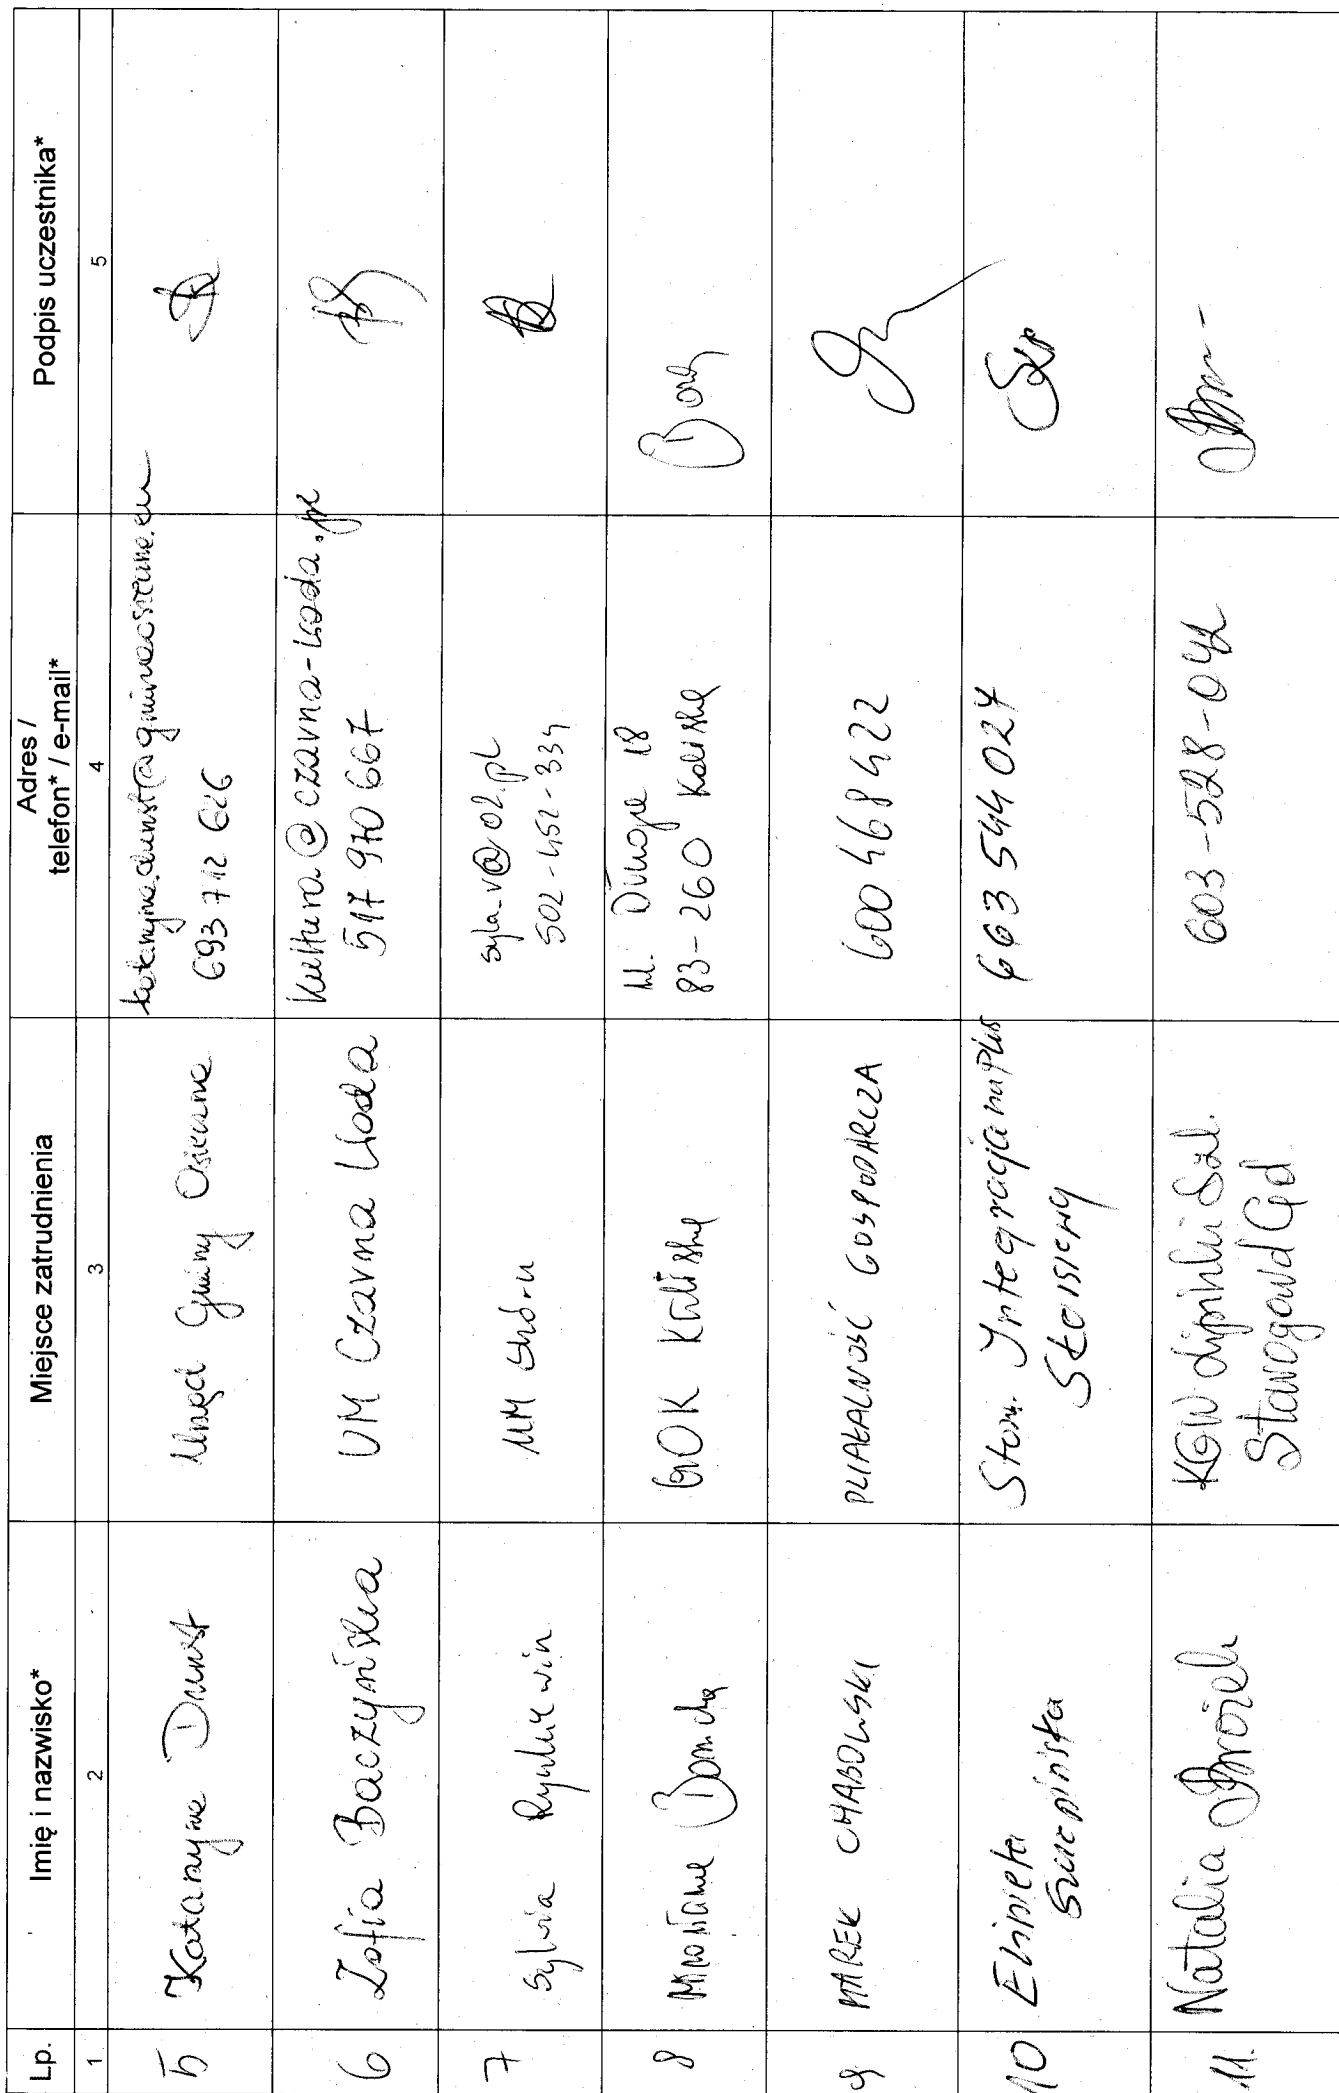 Lp. Imię i nazwisko* Miejsce zatrudnienia Adres / telefon* / e-mail* Podpis uczestnika*
1 2 3 4 5
5 Katarzyna Dunst Urząd Gminy Osieczna katarzyna.dunst@gminaosieczna.eu
693 712 626
6 Zofia Baczyńska UM Czarna Woda kultura@czarna-woda.pl
517 970 667
7 Sylwia UM syla-v@o2.pl
502-452-334
8 Mirosława GOK Kaliska ul. Długa 18
83-260 Kaliska
9 MAREK CHABOWSKI DZIAŁALNOŚĆ GOSPODARCZA 600 468 422
10 Elżbieta Stow. Integracja na Plus 663 544 027
11. Natalia KGW Lipinki Szl. 603-528-042
Starogard Gd